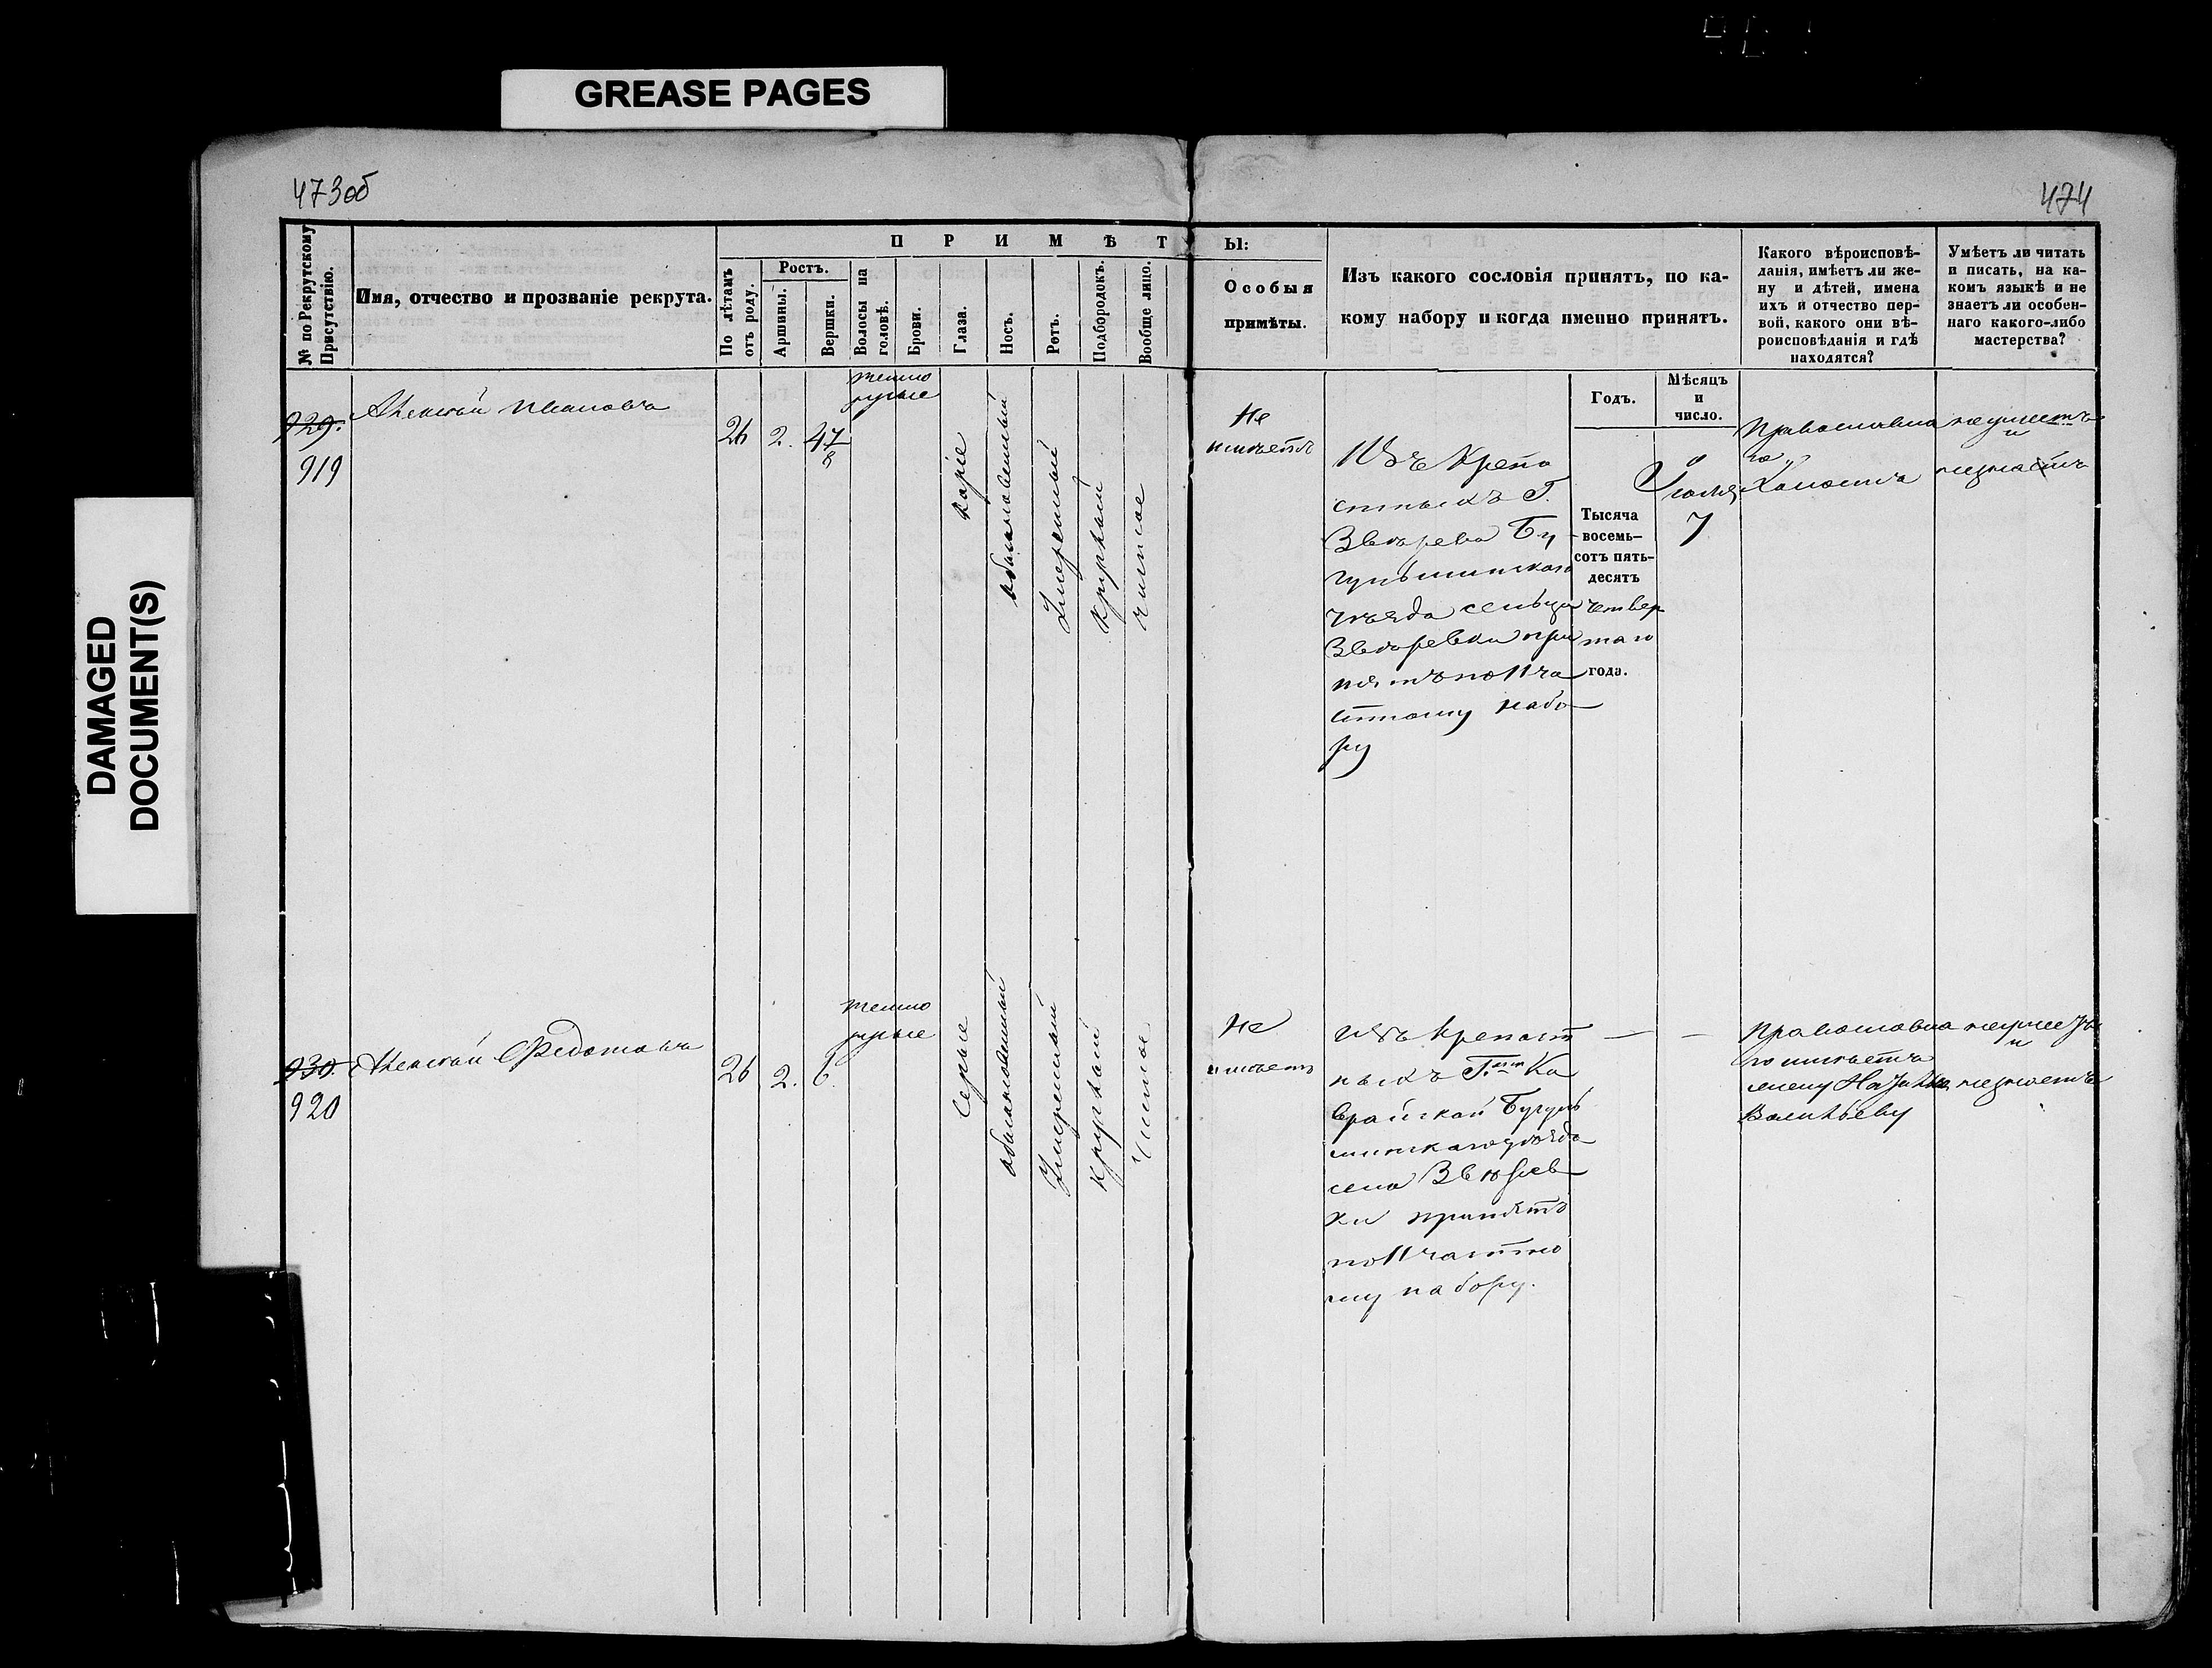 GREASE PAGES
DAMAGED
DOCUMENT(S)
473об
474
№ по Рекрутскому
Присутствію.
Имя, отчество и прозваніе рекрута.
ПРИМѢТЫ:
По лѣтамъ
отъ роду.
Ростъ.
Аршины.
Вершки.
Волосы на
головѣ.
Брови.
Глаза.
Носъ.
Ротъ.
Подбородокъ.
Вообще лицо.
Особыя
примѣты.
Изъ какого сословія принятъ, по ка-
кому набору и когда именно принятъ.
Какого вѣроисповѣ-
данія, имѣетъ ли же-
ну и дѣтей, имена
ихъ и отчество пер-
вой, какого они вѣ-
роисповѣданія и гдѣ
находятся?
Умѣетъ ли читать
и писать, на ка-
комъ языкѣ и не
знаетъ ли особен-
наго какого-либо
мастерства?
Годъ.
Мѣсяцъ
и
число.
929.
919
Алексѣй Ивановъ
26
2.
4 7/8
темно
русые
каріе
обыкновенный
Умеренный
круглый
чистое
Не
имѣетъ
Изъ крепо
стныхъ Г.
Звѣрева Бу
гульминскаго
уѣзда сельца
Звѣревки при
нятъ по 11 ча
стному набо
ру
Тысяча
восемь-
сотъ пять-
десятъ
четвер
таго
года.
Іюля
7
Православна
го
Холостъ
неумеетъ
и
незнаетъ
930.
920
Алексѣй Федотовъ
26
2.
6.
темно
русые
Серые
обыкновенный
Умеренный
круглый
Чистое
Не
имѣетъ
изъ крепост
ныхъ Г.жи Ка
врайской Бугуль
минскаго уѣзда
села Звѣрев
ки принятъ
по 11 частно
му набору.
— —
Православна
го имѣетъ
жену
Васильеву
неумеетъ
и
незнаетъ